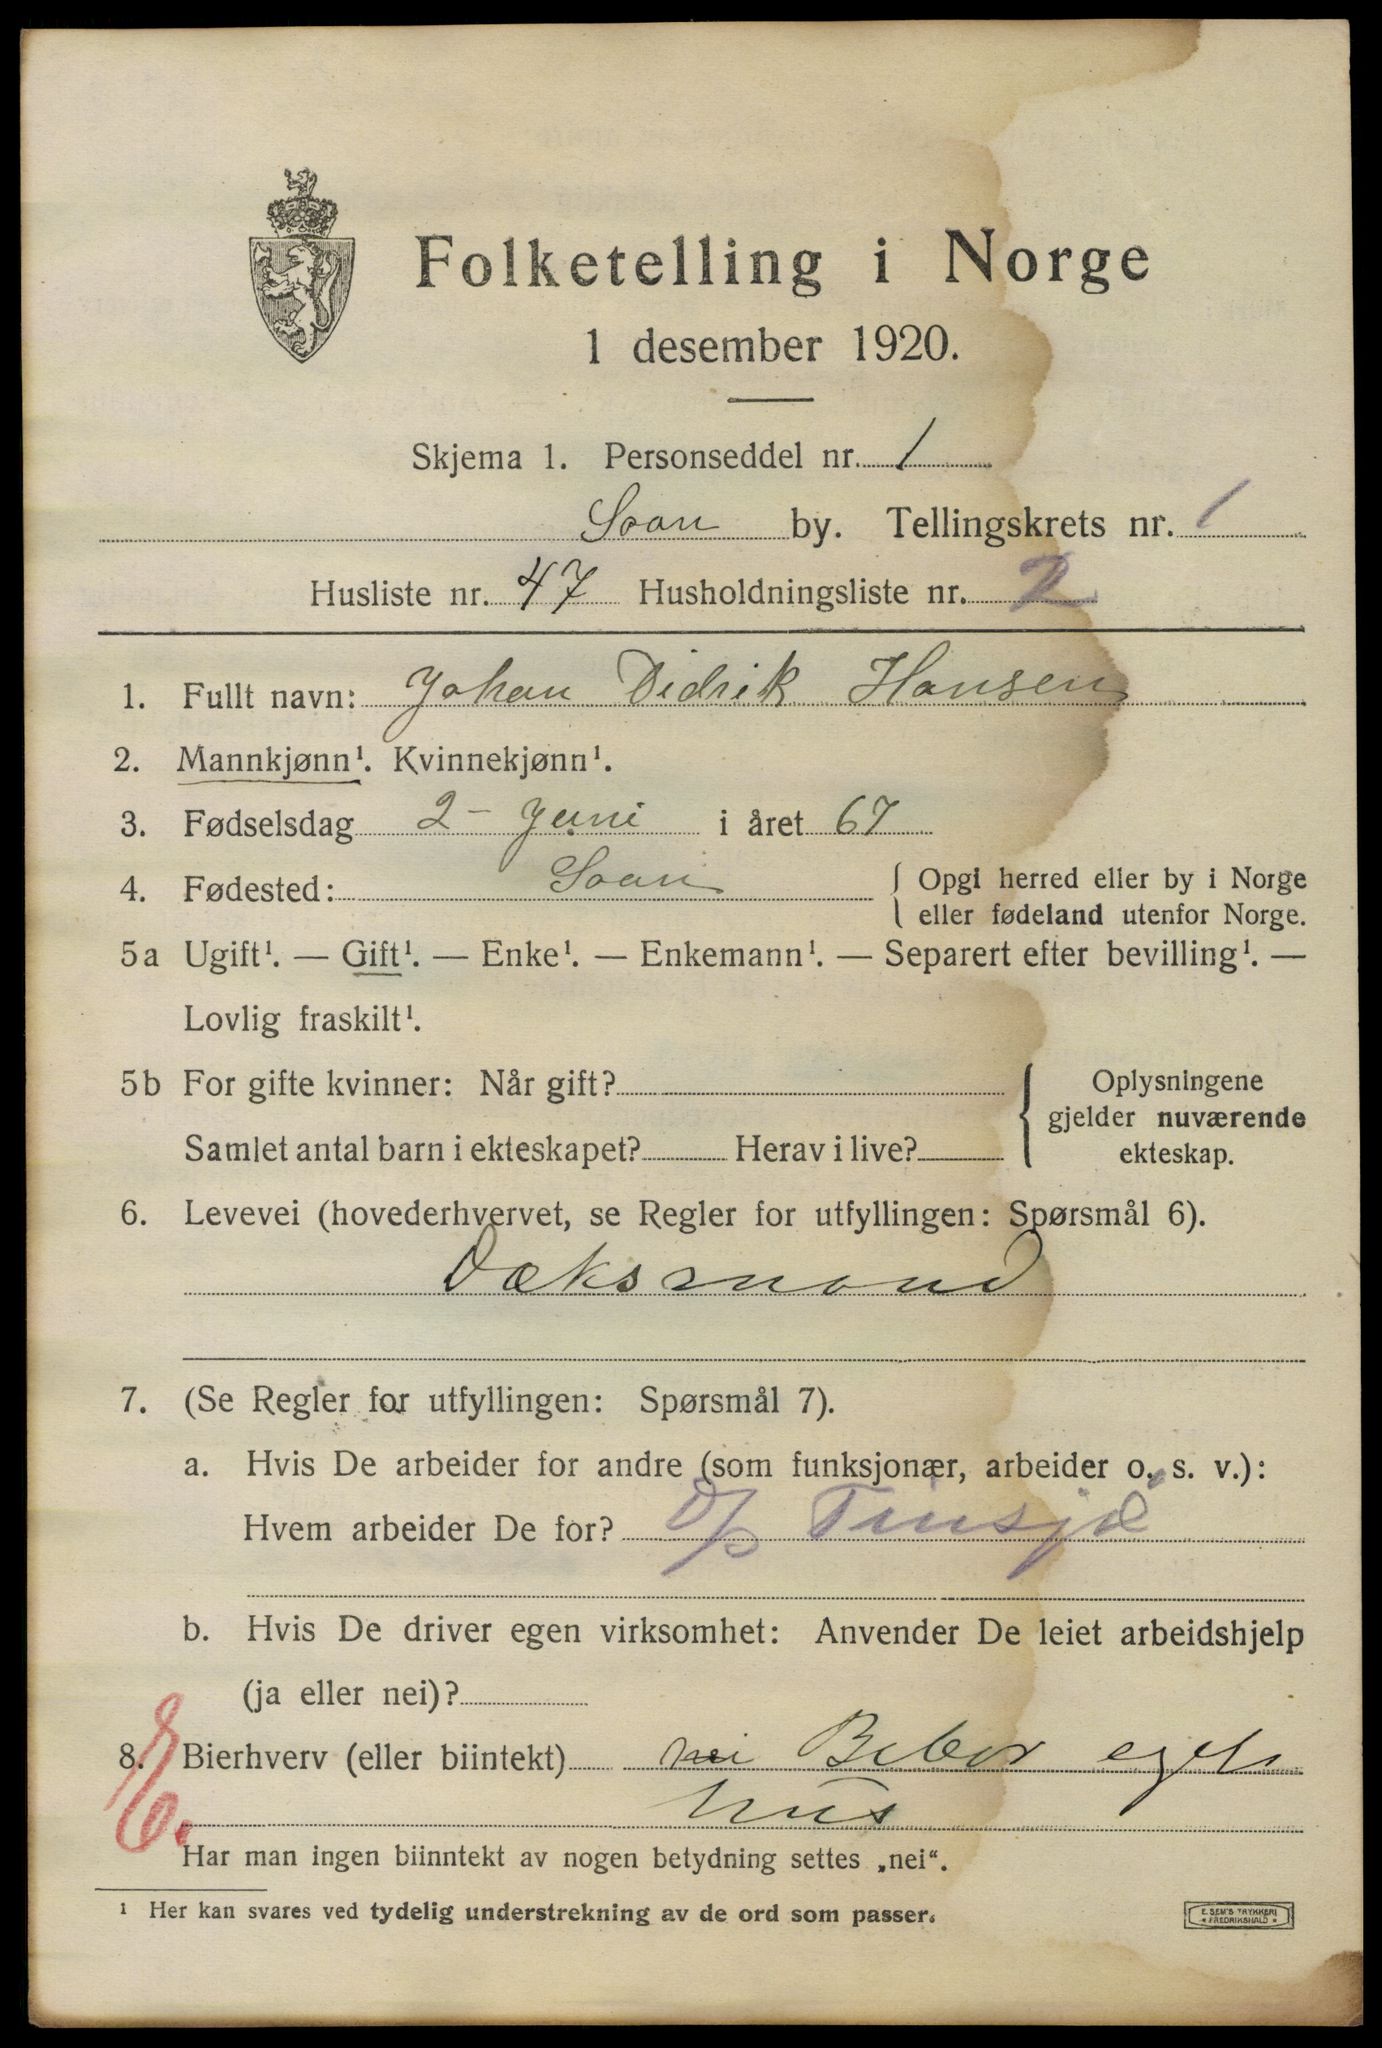 Folketelling i Norge
1 desember 1920.
Skjema 1. Personseddel nr. 1
Soon by. Tellingskrets nr. 1
Husliste nr. 47 Husholdningsliste nr. 2
1. Fullt navn: Johan Didrik Hansen
2. Mannkjønn¹. Kvinnekjønn¹.
3. Fødselsdag 2 - Juni i året 67
4. Fødested: Soon { Opgi herred eller by i Norge
eller fødeland utenfor Norge.
5a Ugift¹. — Gift¹. — Enke¹. — Enkemann¹. — Separert efter bevilling¹. —
Lovlig fraskilt¹.
5b For gifte kvinner: Når gift? { Oplysningene
gjelder nuværende
Samlet antal barn i ekteskapet? Herav i live? ekteskap.
6. Levevei (hovederhvervet, se Regler for utfyllingen: Spørsmål 6).
Dæksmand
7. (Se Regler for utfyllingen: Spørsmål 7).
a. Hvis De arbeider for andre (som funksjonær, arbeider o. s. v.):
Hvem arbeider De for? D/S Tinsjö
b. Hvis De driver egen virksomhet: Anvender De leiet arbeidshjelp
(ja eller nei)?
8. Bierhverv (eller biintekt) nei Bebor eget
hus
Har man ingen biinntekt av nogen betydning settes „nei“.
¹ Her kan svares ved tydelig understrekning av de ord som passer.
E. SEM'S TRYKKERI
* FREDRIKSHALD *